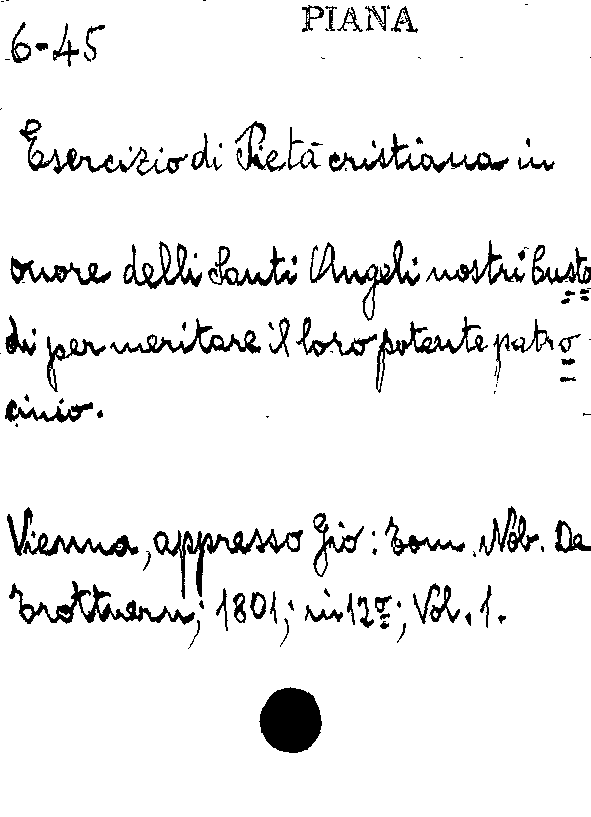 PIANA
6-45
Esercizio di Pietà cristiana in
onore delli Santi Angeli nostri Custo
di per meritare il loro potente patro
cinio.
Vienna, appresso Gio: Tom. Nob. De
Trattnern; 1801; in 12º; Vol. 1.